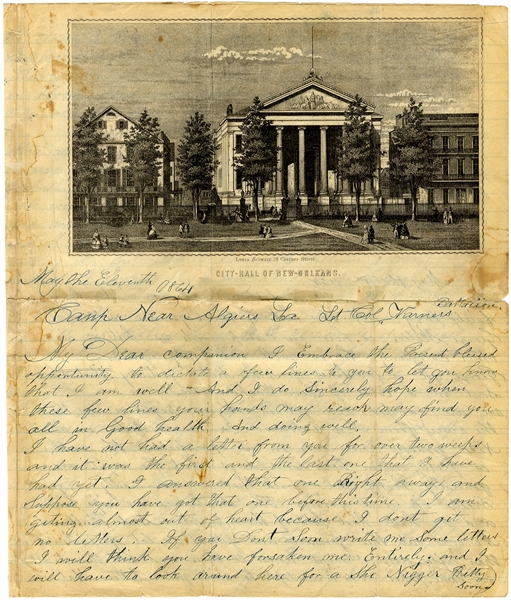 Louis Schwarz 29 Chartres Street
CITY-HALL OF NEW-ORLEANS.
May the Eleventh 1864
Camp Near Algiers La Lt Col Varners
My Dear companion I Embrace the Present blessed
opportunity to dictate a few lines to you to let you know
that I am well And I do Sincerely hope when
these few lines your hands may reach may find you
all in Good health And doing well,
I have not had a letter from you for over two weeks
and it was the first and the last one that I have
had yet. I answered that one Right away and
suppose you have got that one before this time. I am
geting almost out of heart because I dont git
no letters. If you Dont Soon write me Some letters
I will think you have forsaken me Entirely. and I
will have to look around here for a She Nigger Pretty
Soon